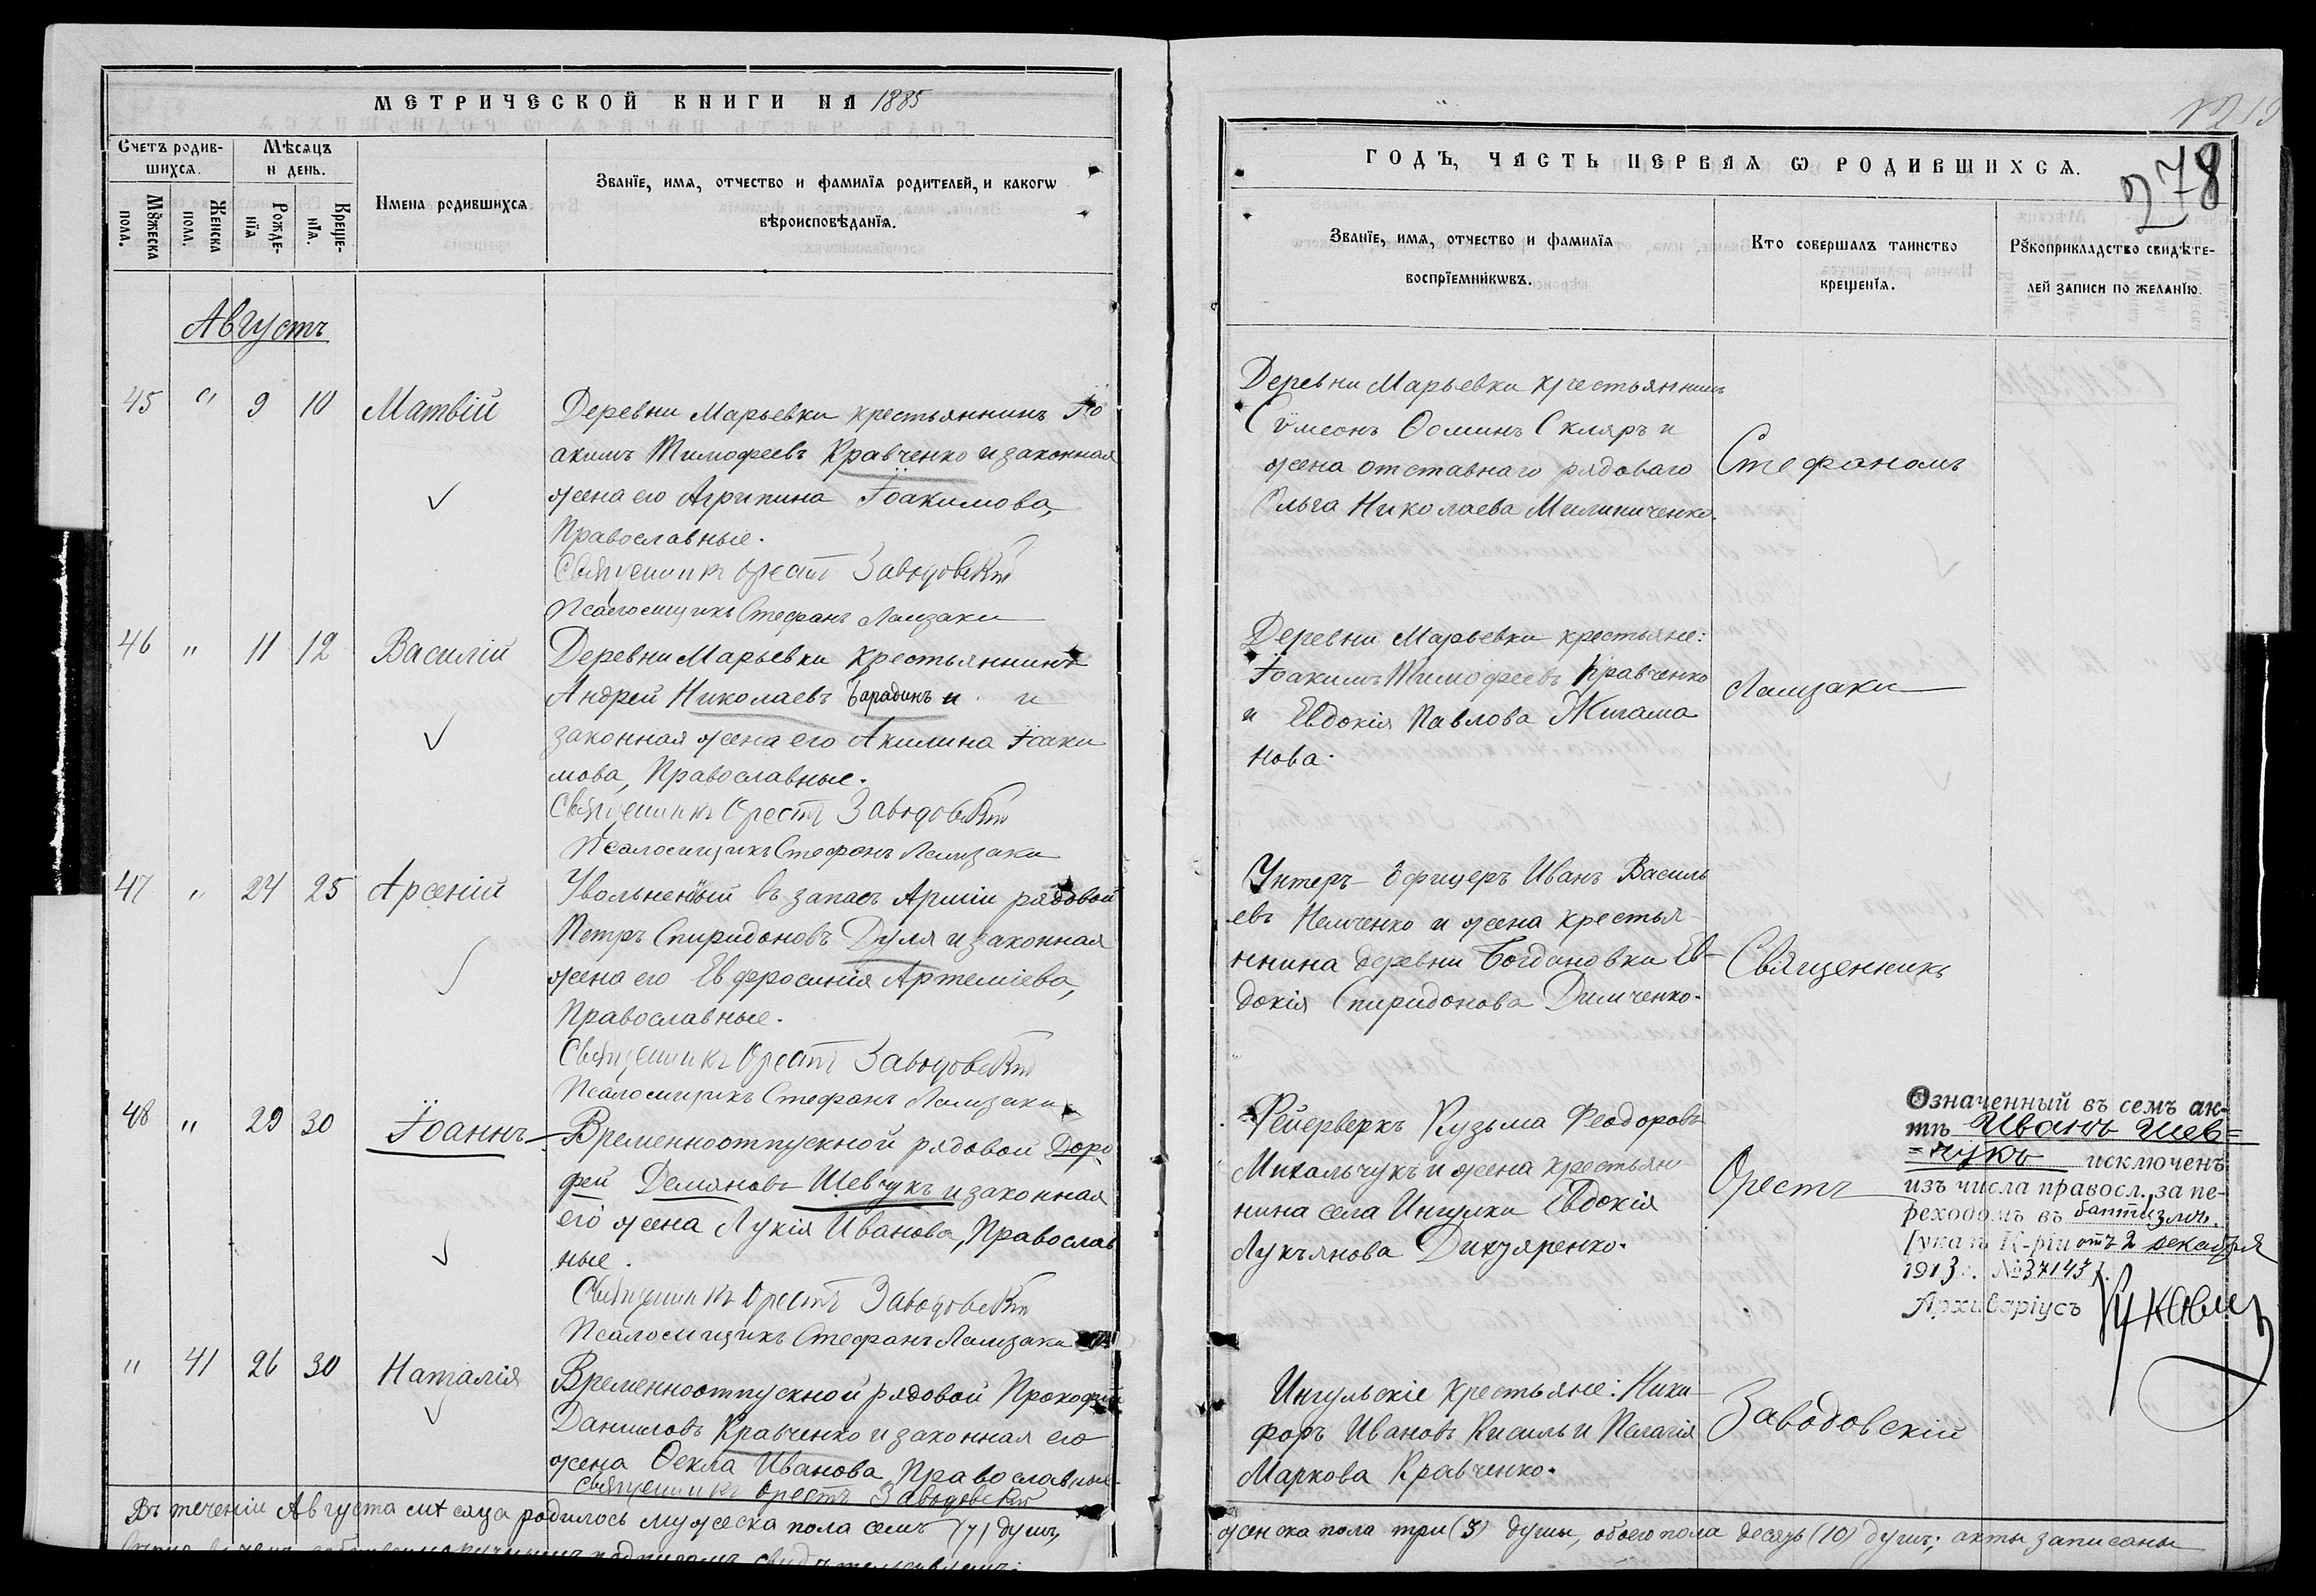 МЕТРИЧЕСКОЙ КНИГИ НА 1885
Счетъ родив-
шихся.
Мѣсяцъ
и день.
Мꙋжеска
пола.
Женска
пола.
Рожде-
нїя
Креще-
нїя.
Имена родившихся
Званїе, имя, отчество и фамилїя родителей, и какогѡ
вѣроисповѣданїя.
Августъ
45 " 9 10 Матвій
Деревни Марьевки крестьяннинъ Іо
акимъ Тимофеевъ Кравченко и законная
жена его Агрипина Іоакимова,
Православные.
Священникъ Орестъ Заводовскій
Псаломщикъ Стефанъ Ламзаки
46 " 11 12 Василій
Деревни Марьевки крестьяннинъ
Андрей Николаевъ Барадинъ и и
законная жена его Акилина Іоаки
мова, Православные.
Священникъ Орестъ Заводовскій
Псаломщикъ Стефанъ Ламзаки
47 " 24 25 Арсеній
Увольненный въ запасъ Арміи рядовой
Петръ Спиридоновъ Дуля и законная
жена его Евфросинія Артеміева,
Православные.
Священникъ Орестъ Заводовскій
Псаломщикъ Стефанъ Ламзаки
48 " 29 30 Іоаннъ
Временноотпускной рядовой Доро
фей Демяновъ Шевчукъ и законная
его жена Лукія Иванова, Православ
ные.
Священникъ Орестъ Заводовскій
Псаломщикъ Стефанъ Ламзаки
" 41 26 30 Наталія
Временноотпускной рядовой Прокофій
Даниловъ Кравченко и законная его
жена Ѳекла Иванова Православные.
Священникъ Орестъ Заводовскій
Въ теченіи Августа мѣсяца родилось мужеска пола семь (7) душъ,
278
ГОДЪ, ЧАСТЬ ПЕРВАЯ Ѡ РОДИВШИХСЯ.
Званїе, имя, отчество и фамилїя
воспрїемникѡвъ.
Кто совершалъ таинство
крещенїя.
Рꙋкоприкладство свидѣте-
лей записи по желанїю.
Деревни Марьевки крестьяннинъ
Сѵмеонъ Ѳоминъ Скляръ и
жена отставнаго рядоваго
Ольга Николаева Милиниченко.
Стефаномъ
Деревни Марьевки крестьяне:
Іоакимъ Тимофеевъ Кравченко
и Евдокія Павлова Жигама
нова.
Ламзаки
Унтеръ-Офицеръ Иванъ Василь
евъ Немченко и жена крестья-
ннина деревни Богдановки Ев-
докія Спиридонова Димченко.
Священникъ
Фейерверкъ Кузьма Феодоровъ
Михальчукъ и жена крестьян
нина села Ингулки Евдокія
Лукъянова Дихтяренко.
Орестъ
Означенный въ семъ ак-
тѣ Иванъ Шев=
=чукъ исключенъ
изъ числа правосл., за пе-
реходомъ въ баптизмъ.
[указъ К-ріи отъ 2 декабря
1913 г. № 37143].
Архиваріусъ
Ингульскіе крестьяне: Ники
форъ Ивановъ Кисиль и Пелагія
Маркова Кравченко.
Заводовскій
женска пола три (3) души, обоего пола десять (10) душъ; акты записаны